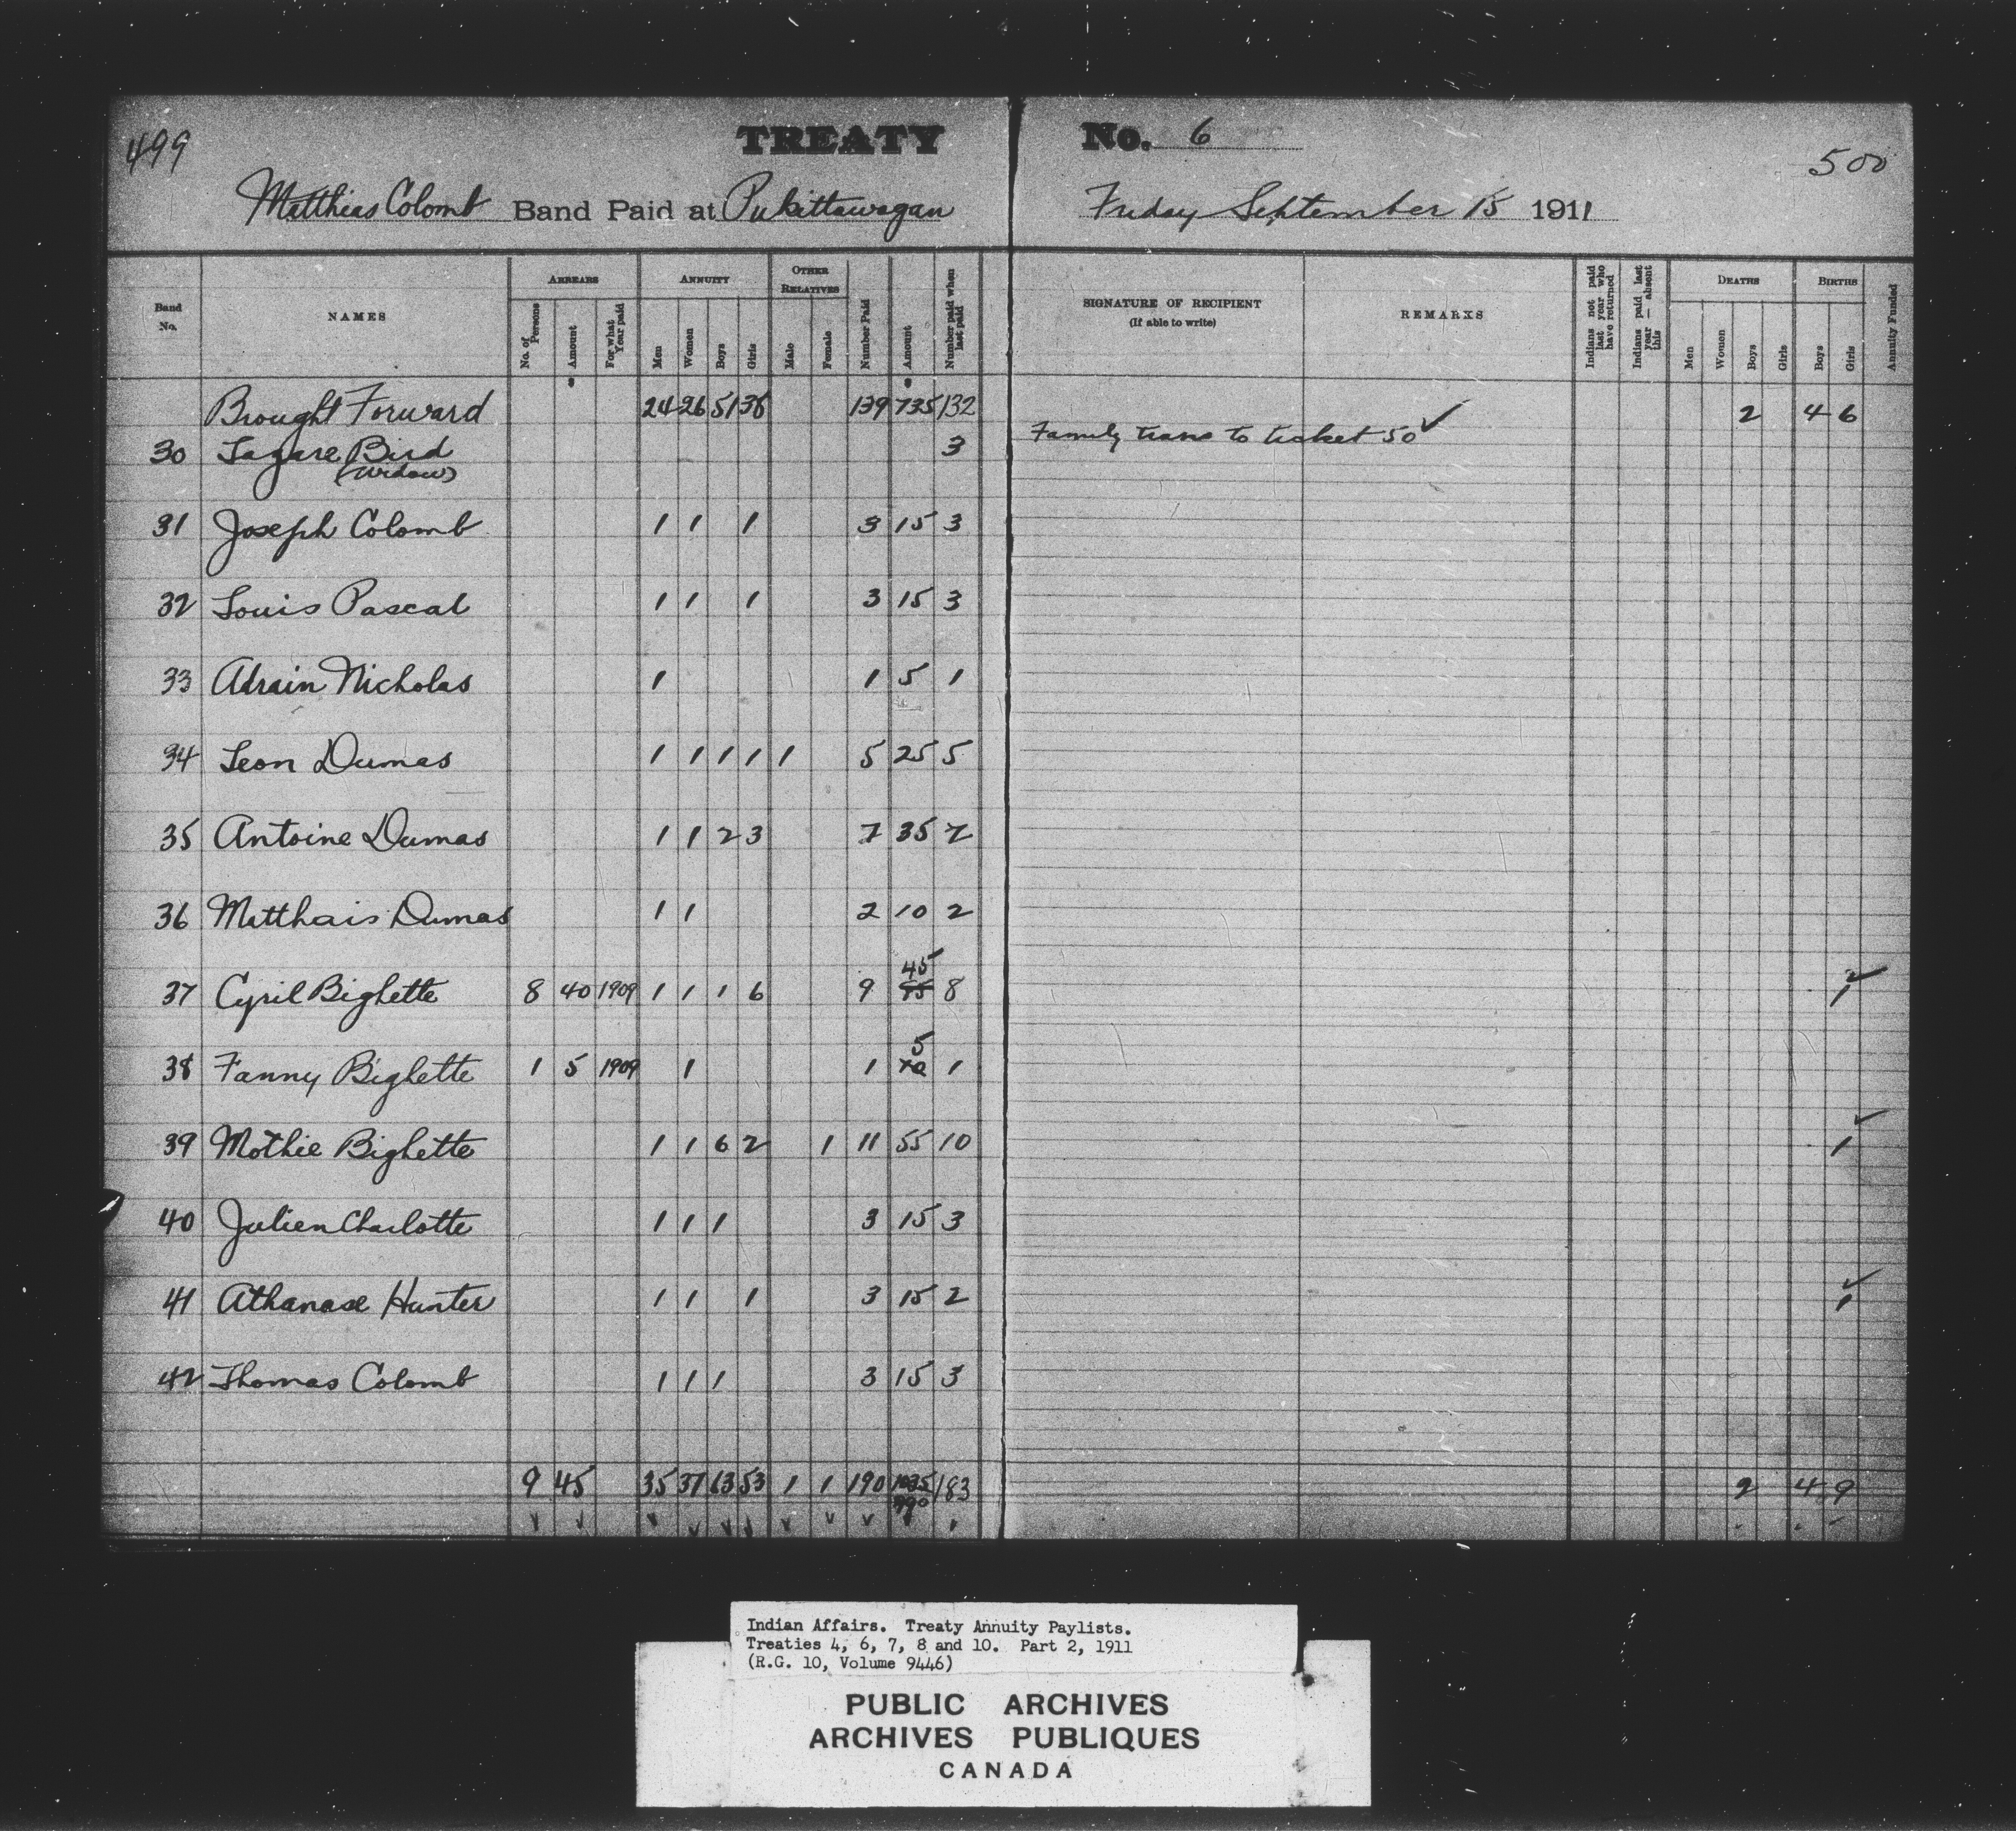 499
TREATY No. 6
500
Matthias Colomb Band Paid at Pukittawagan Friday September 15 1911
Band No.
NAMES
ARREARS
No. of Persons
Amount
For what Year paid
ANNUITY
Men
Women
Boys
Girls
OTHER RELATIVES
Male
Female
Number Paid
Amount
Number paid when last paid
SIGNATURE OF RECIPIENT
(If able to write)
REMARKS
Indians not paid last year who have returned
Indians paid last year — absent this
DEATHS
Men
Women
Boys
Girls
BIRTHS
Boys
Girls
Annuity Funded
Brought Forward 24 26 51 38 139 735 132 2 4 6
30 Lagare Bird 3 Family trans to ticket 50 ✓
(Widow)
31 Joseph Colomb 1 1 1 3 15 3
32 Louis Pascal 1 1 1 3 15 3
33 Adrain Nicholas 1 1 5 1
34 Leon Dumas 1 1 1 1 1 5 25 5
35 Antoine Dumas 1 1 2 3 7 35 7
36 Matthais Dumas 1 1 2 10 2
45
37 Cyril Bighette 8 40 1909 1 1 1 6 9 8 1 ✓
5
38 Fanny Bighette 1 5 1909 1 1 1
39 Mothie Bighette 1 1 6 2 1 11 55 10 1 ✓
40 Julien Charlotte 1 1 1 3 15 3
41 Athanase Hunter 1 1 1 3 15 2 1 ✓
42 Thomas Colomb 1 1 1 3 15 3
9 45 35 37 63 53 1 1 190 1035 183 2 4 9
990
Indian Affairs. Treaty Annuity Paylists.
Treaties 4, 6, 7, 8 and 10. Part 2, 1911
(R.G. 10, Volume 9446)
PUBLIC ARCHIVES
ARCHIVES PUBLIQUES
CANADA